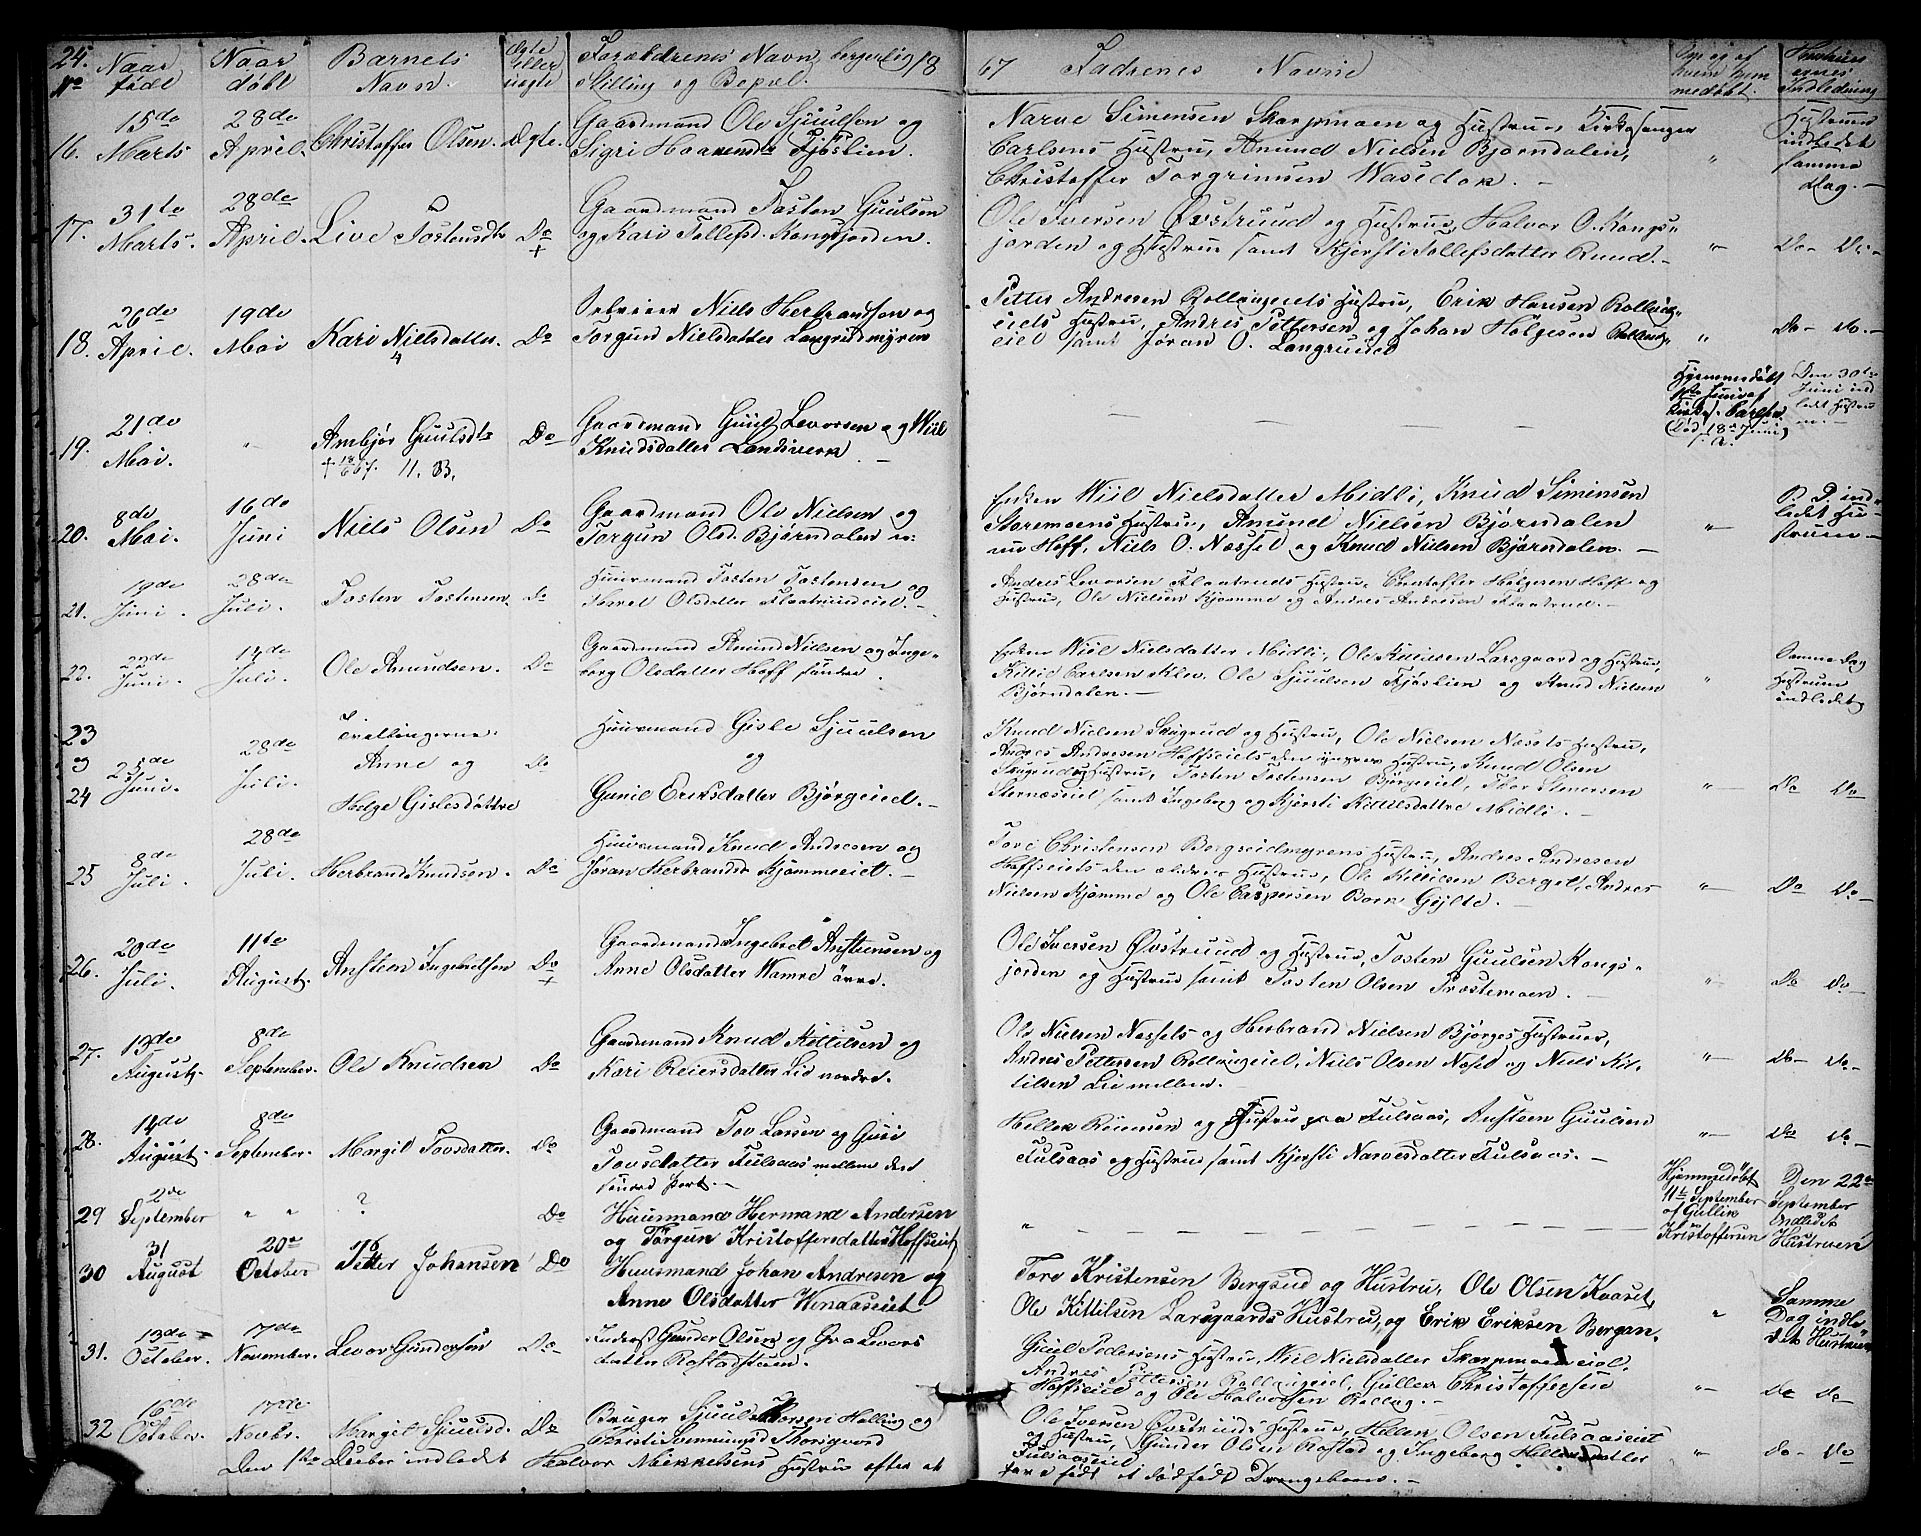 24. Naar Naar Barnets Ægte Forældrenes Navn, borgerlig 18
No født døbt Navn. eller uægte Stilling og Bopæl.
67 Fadrenes Navne
16. 15de Marts 28de April. Christoffer Olsen. Ægte. Gaardmand Ole Sjuulsen og
Sigri Fjøslien.
Narve Simensen Skarpmoen og Hustrue, Kirkesanger
Carlsens Hustru, Amund Nielsen Bjørndalen,
Christoffer Torgrimsen —
" Hustruen indledet samme Dag. —
17. 31te Marts. 28de April. Live Tostensdtr Do + Gaardmand Tosten Guulsen
og Kari Tollefsd. Kongsjorden.
Ole Iversen Øvstruud og Hustrue, Halvor O. Kongs-
jorden og Hustrue samt Kjersti Tollefsdatter Ruud. —
" Do — Do. —
18. 26de April. 19de Mai Kari Nielsdatter. 4 Do Niels Herbrandsen og
Torgund Nielsdatter Langrudmyren
Petter Andresen Rollaugeiets Hustrue, Erik Hansen
eiets Hustru, Andres Pettersen og Johan Holgesen
eiet samt Jøran O. Langruud
" Do — Do. —
19. 21de Mai. " Ambjør Guulsdtr Do Gaardmand Guul Levorsen og Wiil
+ 18/6 67. 11. B. Knudsdatter Landsverk —
— —
Hjemmedøbt Juni af Kirkes. Carlsen (Død 18de Juni) s. a.
Den 30te Juni indledt Hustruen. —
20. 8de Mai. 16de Juni Niels Olsen Do Gaardmand Ole Nielsen og
Torgun Olsd. Bjørndalen n:
Enken Wiil Nielsdatter Midli, Knud Simensen
Storemoens Hustrue, Amund Nielsen Bjørndalen
nu Hoff, Niels O. Næsset og Knud Nielsen Bjørndalen. —
" indledet Hustruen —
21. 19de Juni. 28de Juli. Tosten Tostensen. Do Huusmand Tosten Tostensen og
Olsdatter Flaatrudeiet. —
Andres Levorsen Flaatruds Hustrue, Christoffer Holgersen Hoff og
Hustrue, Ole Nielsen Kjømme og Andres Andresen Flaatrud. —
22. 22de Juni. 14de Juli. Ole Amundsen. Do Gaardmand Amund Nielsen og Inge-
borg Olsdatter Hoff søndre.
Enken Wiil Nielsdatter Midli, Ole Kittilsen Larsgaard og Hustrue,
Kittil Carlsen Klev, Ole Sjuulsen Fjøslien og Knud Nielsen
Bjørndalen. —
" Samme Dag Hustruen indledet
23 Tvillingerne Huusmand Gisle Sjuulsen
og 25de Juni. 28de Juli. Anne og Do og
24 Helge Gislesdøttre Gunil Eriksdatter Bjørgeiet. —
Knud Nielsen Skugrud og Hustru, Ole Nielsen Næsets Hustru,
Andres Andresen Hoffseiets den yngres Hustru, Knud Olsen
Skugrud og Hustru, Tosten Tostensen Bjørgeiet, Thor Simensen
samt Ingeborg og Kjersti Kittilsdøttre Midli. —
" — Do Do —
25 8de Juli. 28de Juli. Herbrand Knudsen. Do Huusmand Knud Andresen og
Jøran Herbrandsd. Kjømmeeiet. —
Tore Christensen Bergseidmyrens Hustrue, Andres Andresen
Hoffseiets den ældres Hustrue, Ole Kittilsen Berget, Andres
Nielsen Kjømme og Ole Caspersen Born Gjylte. —
" — Do Do —
26. 20de Juli. 11te August. Ansteen Ingebretsen Do + Gaardmand Ingebret Anstensen og
Anne Olsdatter Wamre övre.
Ole Iversen Øvstruud og Hustrue, Tosten Guulsen Kongs-
jorden og Hustrue samt Tosten Olsen Præstemoen. —
" Do Do —
27. 13de August. 8de September. Ole Knudsen Do Gaardmand Knud Kittilsen og
Kari Reiersdatter Lie nordre.
Ole Nielsen Næssets og Herbrand Nielsen Bjørges Hustruer,
Andres Pettersen Rollaugeiet, Niels Olsen Næset og Niels Kit-
tilsen Lie mellem. —
" — Do — Do —
28. 14de August. 8de September. Margit Tovsdatter. Do Gaardmand Tov Larsen og Guri
Tovsdatter Fulsaas mellem den
Part. —
Hellek og Hustrue paa Fulsaas, Ansteen Guulsen
Fulsaas og Hustrue samt Kjersti Narvesdatter Fulsaas. —
" — Do Do —
29 2de September " " ? Do Huusmand Hermand Andersen
og Torgun Kristoffersdatter Hoffseiet
" — — — —
Hjemmedøbt 11te September af Gullik Kristoffersen
Den 22de September indledet Hustruen
30 31 August 20de October Petter Johansen Do Huusmand Johan Andresen og
Anne Olsdatter
Tore Kristensen Bergseid og Hustru, Ole Olsen
Ole Kittilsen Larsgaards Hustru, og Erik Eriksen Bergan.
" Samme Dag indledet Hustruen
31. 13de October. 17de November. Levor Gundersen Do Inderst Gunder Olsen og Gro Levors-
datter Rostadstuen.
Guul Pedersens Hustrue, Wiil Nielsdatter Skarpmoeneiet,
Andres Pettersen Rollaugeiet, Gullek Christoffersen
Hoffseiet og Ole Halvorsen Rollag. —
" — Do Do —
32 16de October. 17de Novbr. Margit Sjuulsd. Do Bruger Sjuul Halling og
Christi
Ole Iversen Øvstruuds Hustrue, Hellek Olsen Fulsaaseiet
og Hustru, Gunder Olsen Rostad og Ingeborg Helleksdatter
Fulsaaseiet
" Do — Do
Den 1te Decber indledet Halvor Mikkelsens Hustrue efter at
have født et dødfødt Drengebarn. —